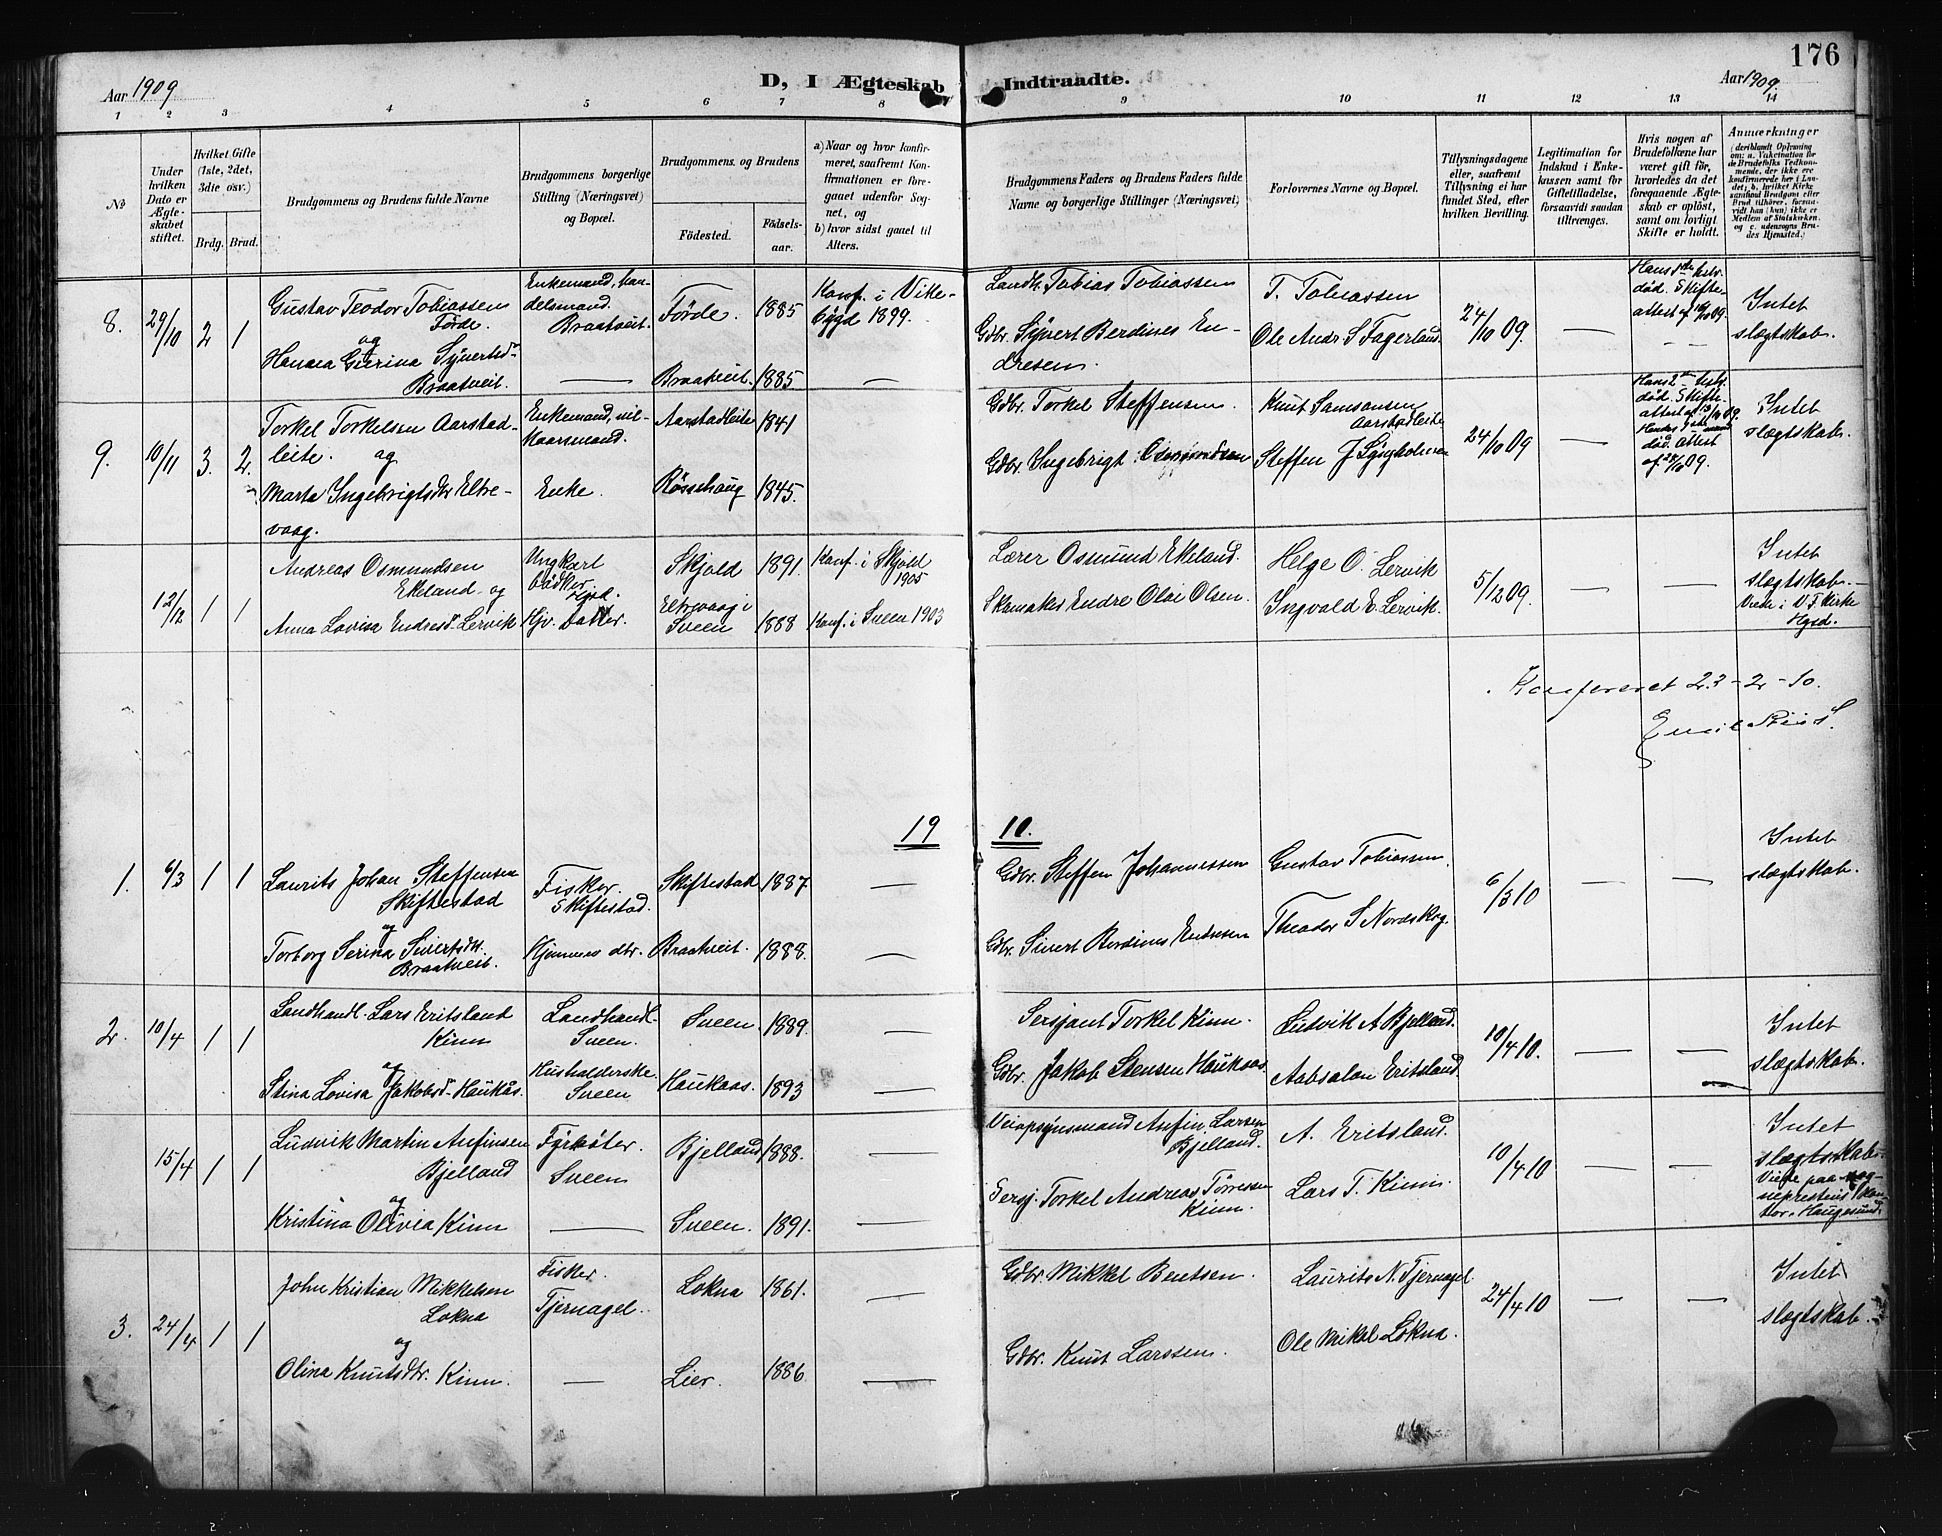 176
Aar 1909
D, I Ægteskab Indtraadte.
Aar 1909.
1 2 3 4 5 6 7 8 9 10 11 12 13 14
No
Under hvilken Dato er Ægteskabet stiftet.
Hvilket Gifte (1ste, 2det, 3die osv.)
Brdg. Brud.
Brudgommens og Brudens fulde Navne
Brudgommens borgerlige Stilling (Næringsvei) og Bopæl.
Brudgommens og Brudens
Fødested.
Fødselsaar.
a) Naar og hvor konfirmeret, saafremt Konfirmationen er foregaaet udenfor Sognet, og
b) hvor sidst gaaet til Alters.
Brudgommens Faders og Brudens Faders fulde Navne og borgerlige Stillinger (Næringsvei)
Forlovernes Navne og Bopæl.
Tillysningsdagene eller, saafremt Tillysning ei har fundet Sted, efter hvilken Bevilling.
Legitimation for Indskud i Enkekassen samt for Giftetilladelse, forsaavidt saadan tiltrænges.
Hvis nogen af Brudefolkene har været gift før, hvorledes da det foregaaende Ægteskab er opløst, samt om lovligt Skifte er holdt.
Anmerkninger
8. 29/10 2 1
Gustav Teodor Tobiassen
Förde.
og
Hanna Gurina Sÿvertsdr
Braatveit.
Enkemand, handelsmand.
Braatveit.
—
Förde. 1885
Braatveit. 1885
Konf. i Vikebÿgd 1899.
—
Landh. Tobias Tobiassen
Gdbr. Sÿvert Berdines Endresen.
T. Tobiassen
Ole Andr. S. Fagerland.
24/10 09.
—
Hans 1ste hstr. død. Skifteattest af 19/10 09.
Intet
slægtskab.
9. 10/11 3. 2.
Torkel Torkelsen Aarstadleite. og
Marta Ingebrigtsdtr Eltrevaag.
Enkemand, vilkaarsmand.
Enke.
Aarstadleite 1841
Røssehaug 1845.
Gdbr. Torkel Steffensen.
Gdbr. Ingebrigt Osmundsen
Knut Samsonsen
Aarstadleite
Steffen J
24/10 09
—
Hans 2den hstr. død. Skifteattest
død. attest
af 09.
Intet
slægtskab.
12/12 1 1
Andreas Osmundsen
Ekeland og
Anna Lovisa Endresd. Lervik
Ungkarl
bådker
Hjv. Datter.
Skjold 1891.
Eltrevaag i
Sveen 1888
Konf. i Skjold
1905
Konf. i Sveen 1903
Lærer Osmund Ekeland.
Skomaker Endre Olai Olsen.
Helge O. Lervik
Ingvald E. Lervik.
5/12 09.
— —
Intet
slægtskab.
Viede i V. F. Kirke
Hgsd.
Konfereret 23-2-10.
19 10.
1. 6/3 1 1
Laurits Johan Steffensen
Skiftestad
og
Torborg Serina Sivertsdtr.
Braatveit.
Fisker.
Skiftestad.
Hjemmev. dtr.
Skiftestad 1887.
Braatveit. 1888.
—
—
Gdbr. Steffen Johannessen
Gdbr. Sivert Berdines Endresen
Gustav Tobiassen.
Theodor S Nordskog.
6/3 10
— —
Intet
slægtskab.
2. 10/4 1 1
Landhandl. Lars Eritsland
Kinn
og
Stina Lovisa Jakobsd. Haukås.
Landhandl.
Sveen.
Husholderske.
Sveen
Sveen. 1889.
Haukaas. 1893
—
—
Sersjant Torkel Kinn.
Gdbr. Jakob Stensen Haukaas
Ludvik A. Bjelland.
Aabsalon Eritsland.
10/4 10.
— —
Intet
slægtskab.
15/4 1 1
Ludvik Martin Anfinsen
Bjelland
og
Kristina Olivia Kinn
Fÿrbøter
Sveen
—
Bjelland 1888.
Sveen. 1891.
—
—
Veiopsÿnsmand Anfin Larsen
Bjelland.
Sersj. Torkel Andreas Tørressen
Kinn.
A. Eritsland.
Lars T. Kinn.
10/4 10
— —
Intet
slægtskab.
Viede paa sogneprestens kontor. Haugesund.
3. 24/4 1 1
John Kristian Mikkelsen
Lokna
og
Olina Knutsdtr. Kinn.
Fisker.
Tjernagel.
—
Lokna 1861.
Lier. 1886
—
—
Gdbr. Mikkel Bentsen.
Gdbr. Knut Larssen.
Laurits N. Tjernagel
Ole Mikal Lokna.
24/4 10
— —
Intet
slægtskab.